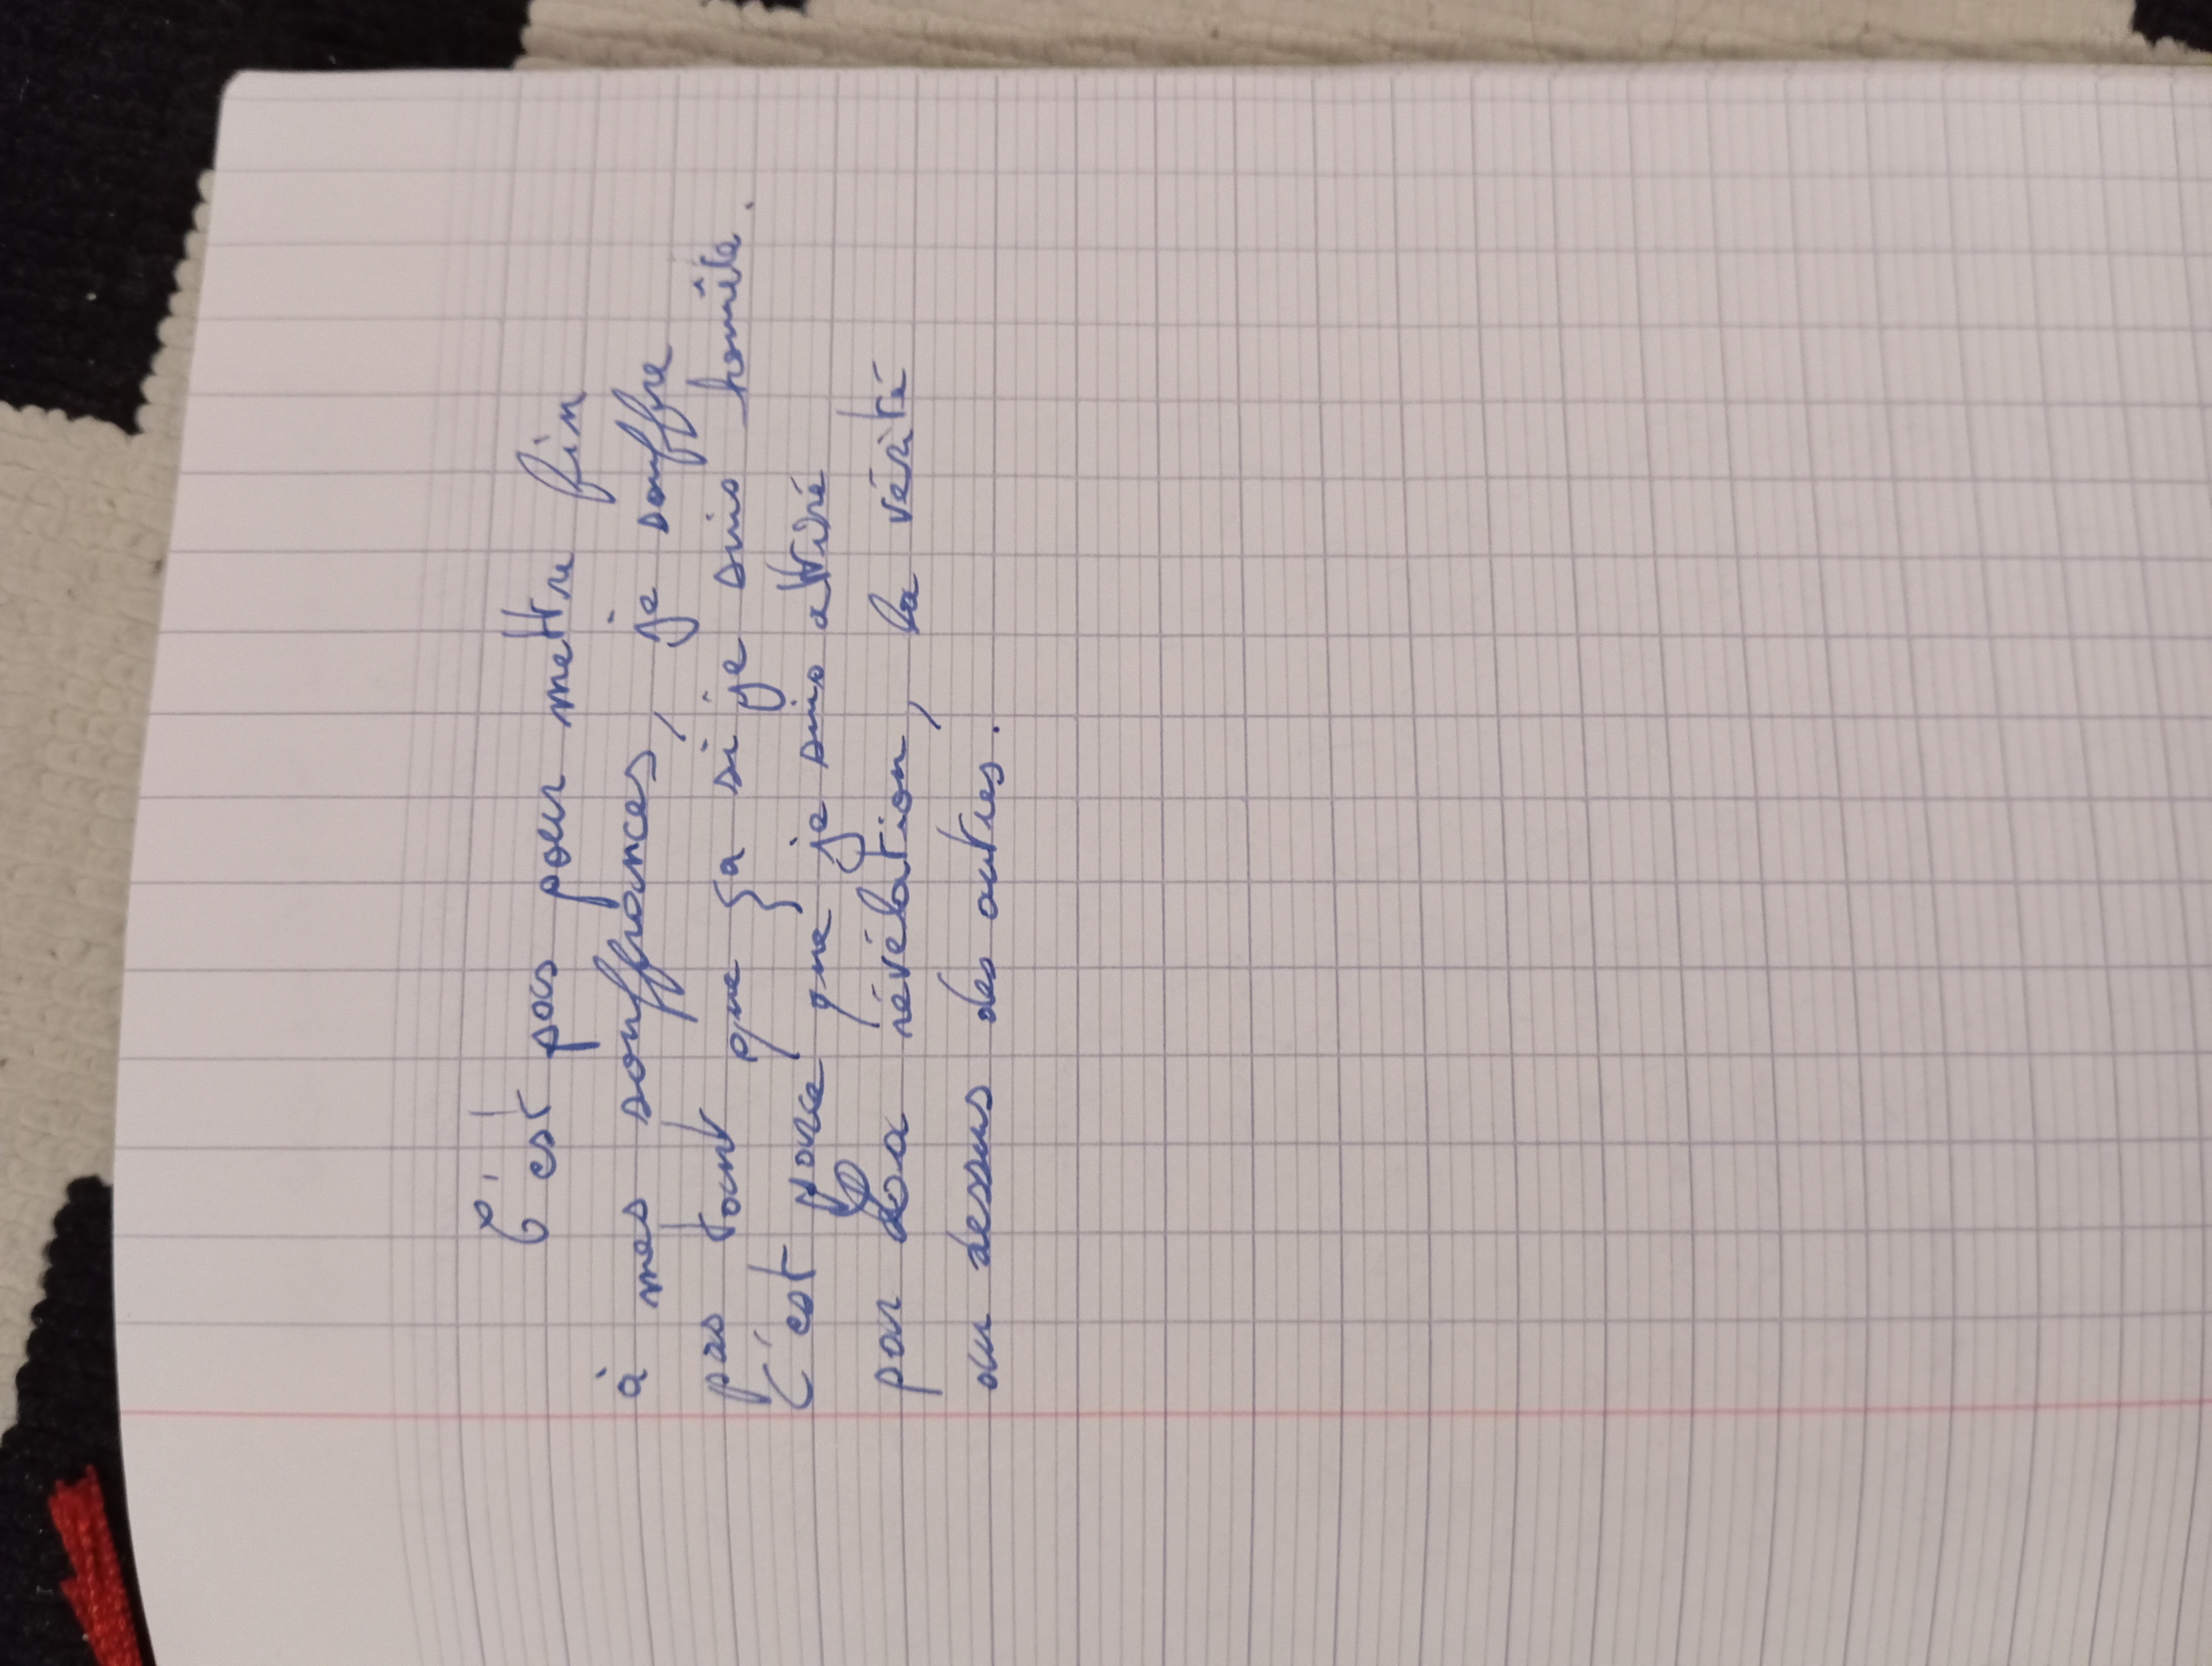 C'est pas pour mettre fin
à mes souffrances, je souffre
pas tant que ça si je suis honnête.
C'est parce que je suis attiré
par La révélation, la vérité
au dessus des autres.